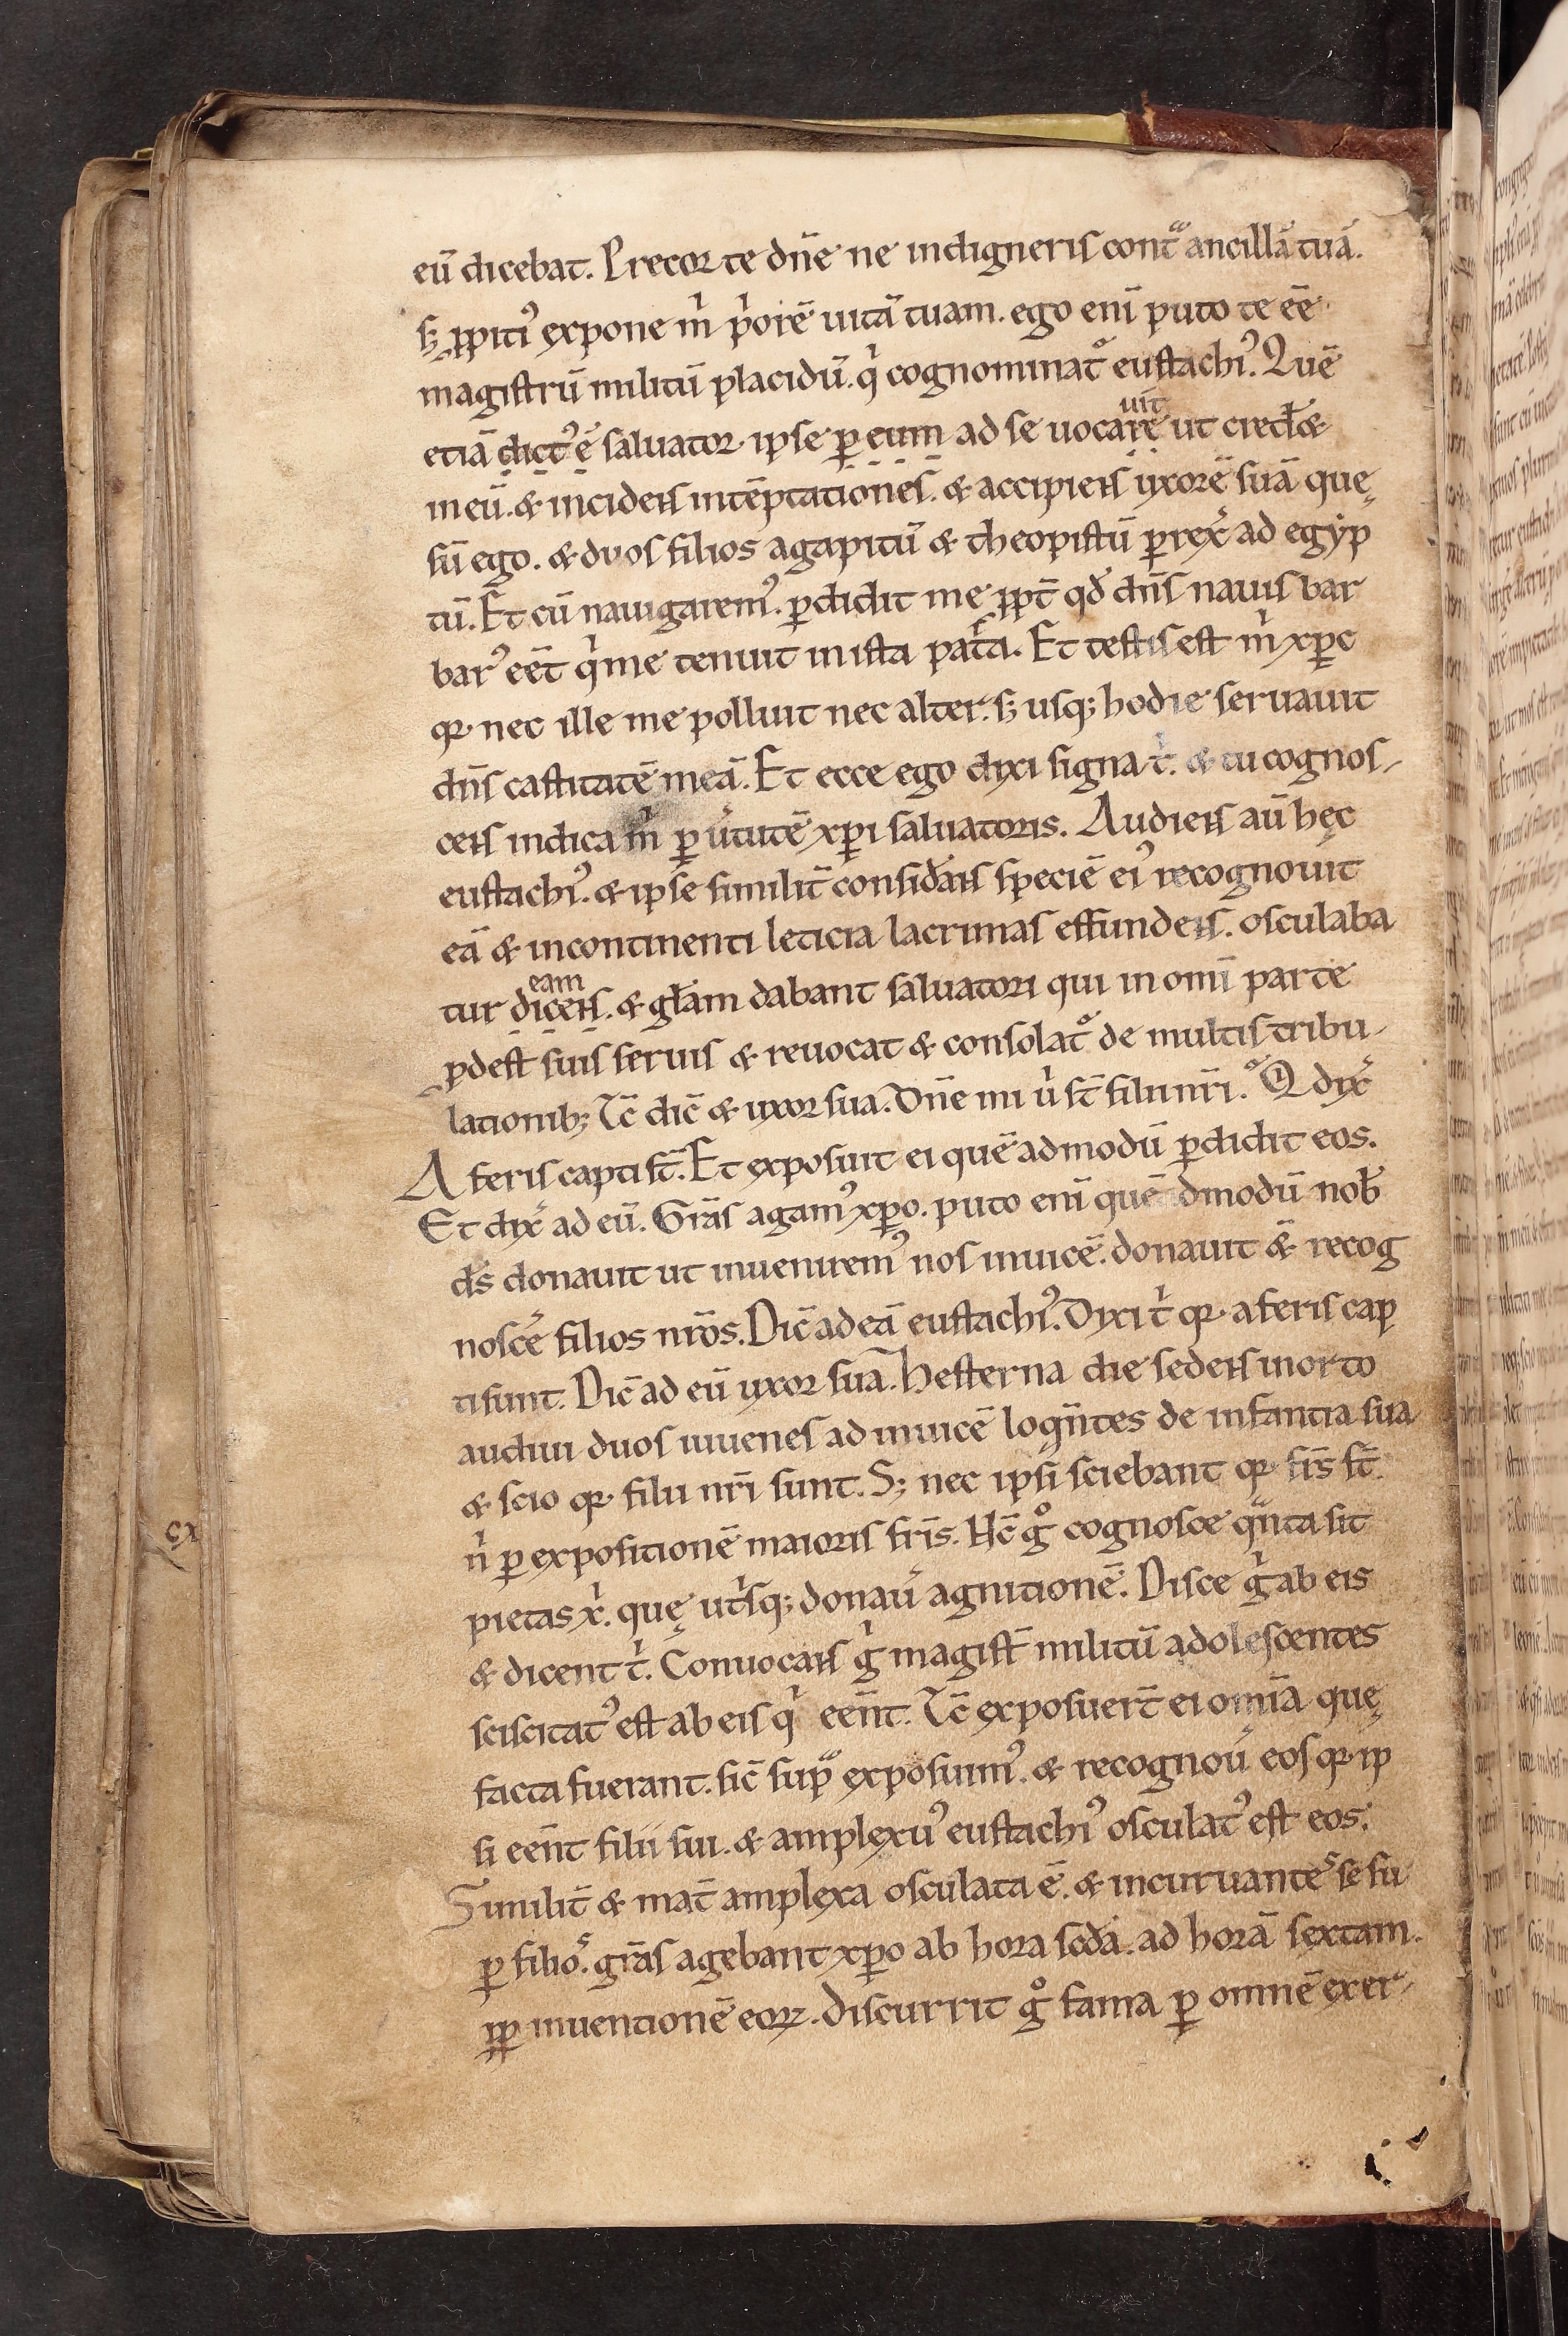 eū dicebat. Precor te dn̄e ne indigneris contͣ ancillā tuā.
sꝫ ꝓpitiꝰ expone m̍ p̍orē uitā tuam. ego eni̅ puto te ee̅
magistrū militū placidū. q̍ cognominat᷑ eustachiꝰ. Quē
etiā dictꝰ ē saluator ipse ꝑ eum ad se uocare ut cred͛&
uit
meū. & incidens intēptationes̄. & accipiens uxorē suā quę
sū ego. & duos filios agapitū & theopistū ꝑrex̍ ad egyp
tū. Et cū nauigaremꝰ. ꝑdidit me ꝓpt̄ qd̄ dn̄s nauis bar
barꝰ eet̄ q̍ me tenuit in ista pat̍a. Et testis est m̍ xp̄c
qꝛ nec ille me polluit nec alter. sꝫ usqꝫ hodie seruauit
dn̄s castitatē meā. Et ecce ego dixi signa t̍. & tu cognos-
cens indica m̍ ꝑ u̍tutē xp̄i saluatoris. Audiens au̅ hęc
eustachiꝰ. & ipse similit̄ consid͛ans speciē eiꝰ recognouit
eā & incontinenti leticia lacrimas effundens. osculaba
eam
tur dicens. & gl̄am dabant saluatori qui in omi̅ parte
ꝓdest suis seruis & reuocat & consolat᷑ de multis tribu-
lationibꝫ Tc̄ dic̄ & uxor sua. Dn̄e mi u̍ st̄ filii nr̄i. Qͦ dix̍
A feris capti st̄. Et exposuit ei quē admodū ꝑdidit eos.
Et dix̍ ad eū. Grā̄s agamꝰ xp̄o. puto eni̅ quē admodū nob̄
ds̄ donauit ut inueniremꝰ nos inuicē. donauit &̄ recog
noscē filios nr̄os. Dic̄ ad eā eustachiꝰ. Dixi t̍ qꝛ a feris cap
ti sunt. Dic̄ ad eū uxor sua. Hesterna die sedens in orto
audiui duos iuuenes ad inuicē loqn̄tes de infantia sua
& scio qꝛ filii nr̄i sunt. Sꝫ nec ipsi sciebant qꝛ frs̄ st̄
n̍ ꝑ expositionē maioris fris̄. Hc̄ gͦ cognosce qͣnta sit
pietas x̍. quę ut̍sqꝫ donau̍ agnitionē. Disce g̍ ab eis
& dicent t̍. Conuocans g̍ magist̄ militū adolescentes
sciscitatꝰ est ab eis q̍ een̄t. Tc̄ exposuert̄ ei omi̅a quę
facta fuerant. sic̄ supͣ exposuimꝰ. & recognou̍ eos qꝛ ip
si een̄t filii sui. & amplexuꝰ eustachiꝰ osculatꝰ est eos.
Similit̄ & mat̄ amplexa osculata ē. & incuruantes se su
ꝑ filios. grā̄s agebant xp̄o ab hora sc̄da. ad horā sextam.
ꝓp inuentionē eoꝝ. Discurrit gͦ fama ꝑ omnē exer-
cx